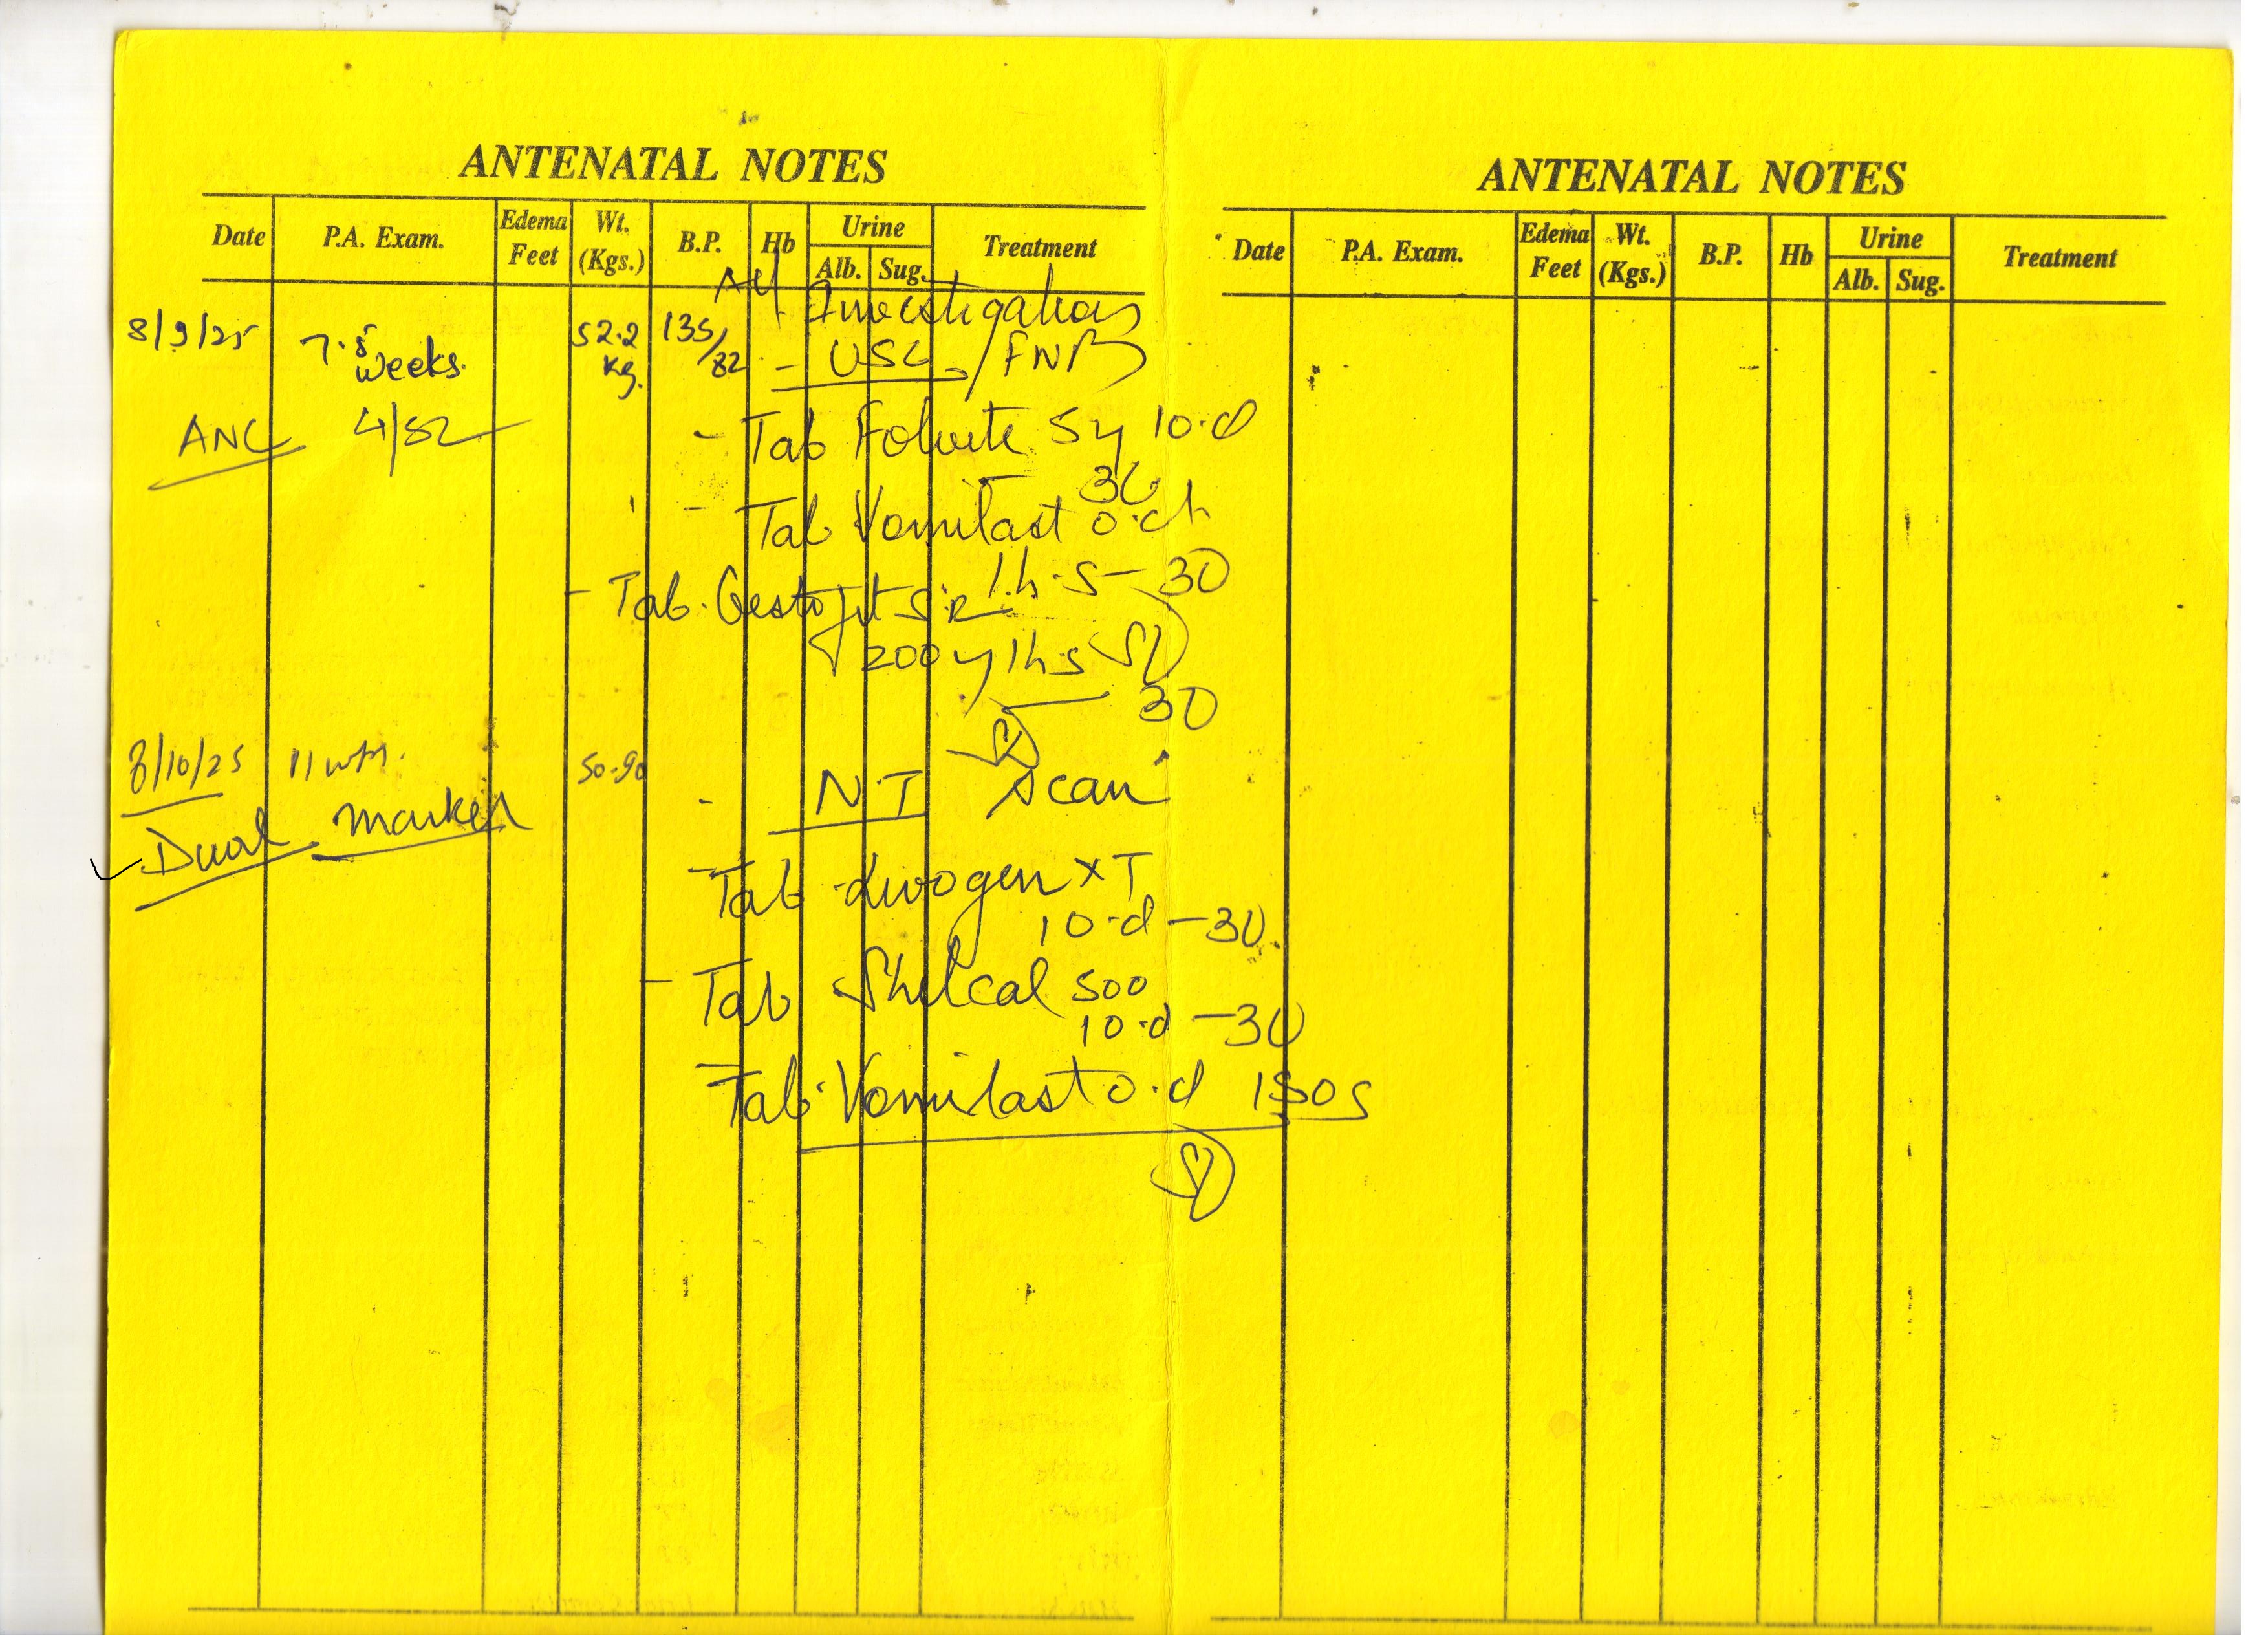 ANTENATAL NOTES
Date P.A. Exam. Edema Feet Wt. (Kgs.) B.P. Hb Urine Alb. Sug. Treatment
All Investigations
8/9/25 7.5 weeks. 52.2 Kg. 135/82 - USG / FNB
ANC 4/52
- Tab Folvite 5 10.d
30
- Tab Vomilast o.d
- Tab. Gestofit SR 1h.s - 30
200 1h.s
30
8/10/25 11 wks. 50.90
- N.T scan
Dual Marker
- Tab Livogen XT
10.d - 30.
- Tab Shelcal 500
10.d - 30
- Tab. Vomilast o.d
ANTENATAL NOTES
Date P.A. Exam. Edema Feet Wt. (Kgs.) B.P. Hb Urine Alb. Sug. Treatment